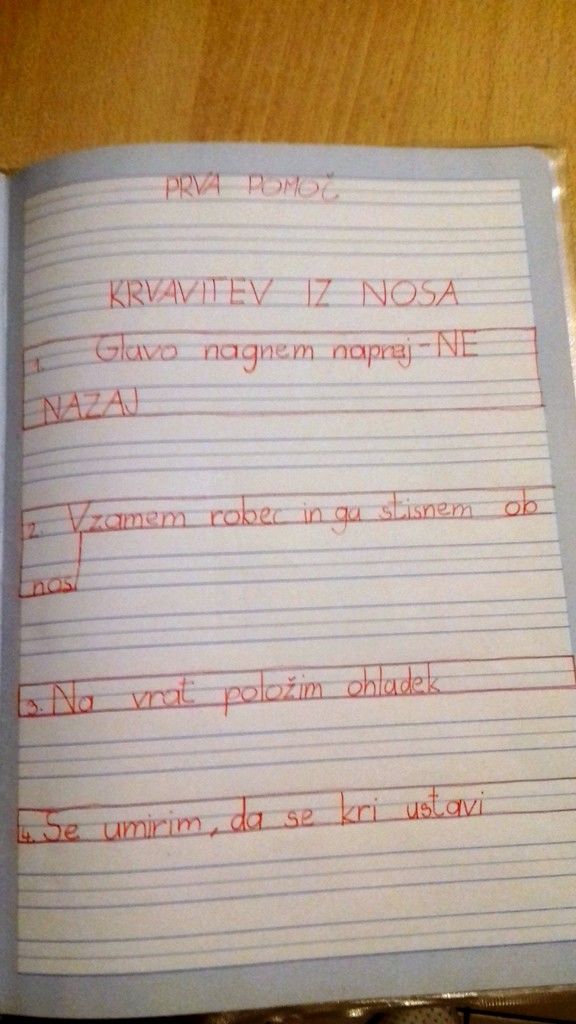 PRVA POMOČ
KRVAVITEV IZ NOSA
1. Glavo nagnem naprej - NE
NAZAJ
2. Vzamem robec in ga stisnem ob
nos
3. Na vrat položim ohladek
4. Se umirim, da se kri ustavi